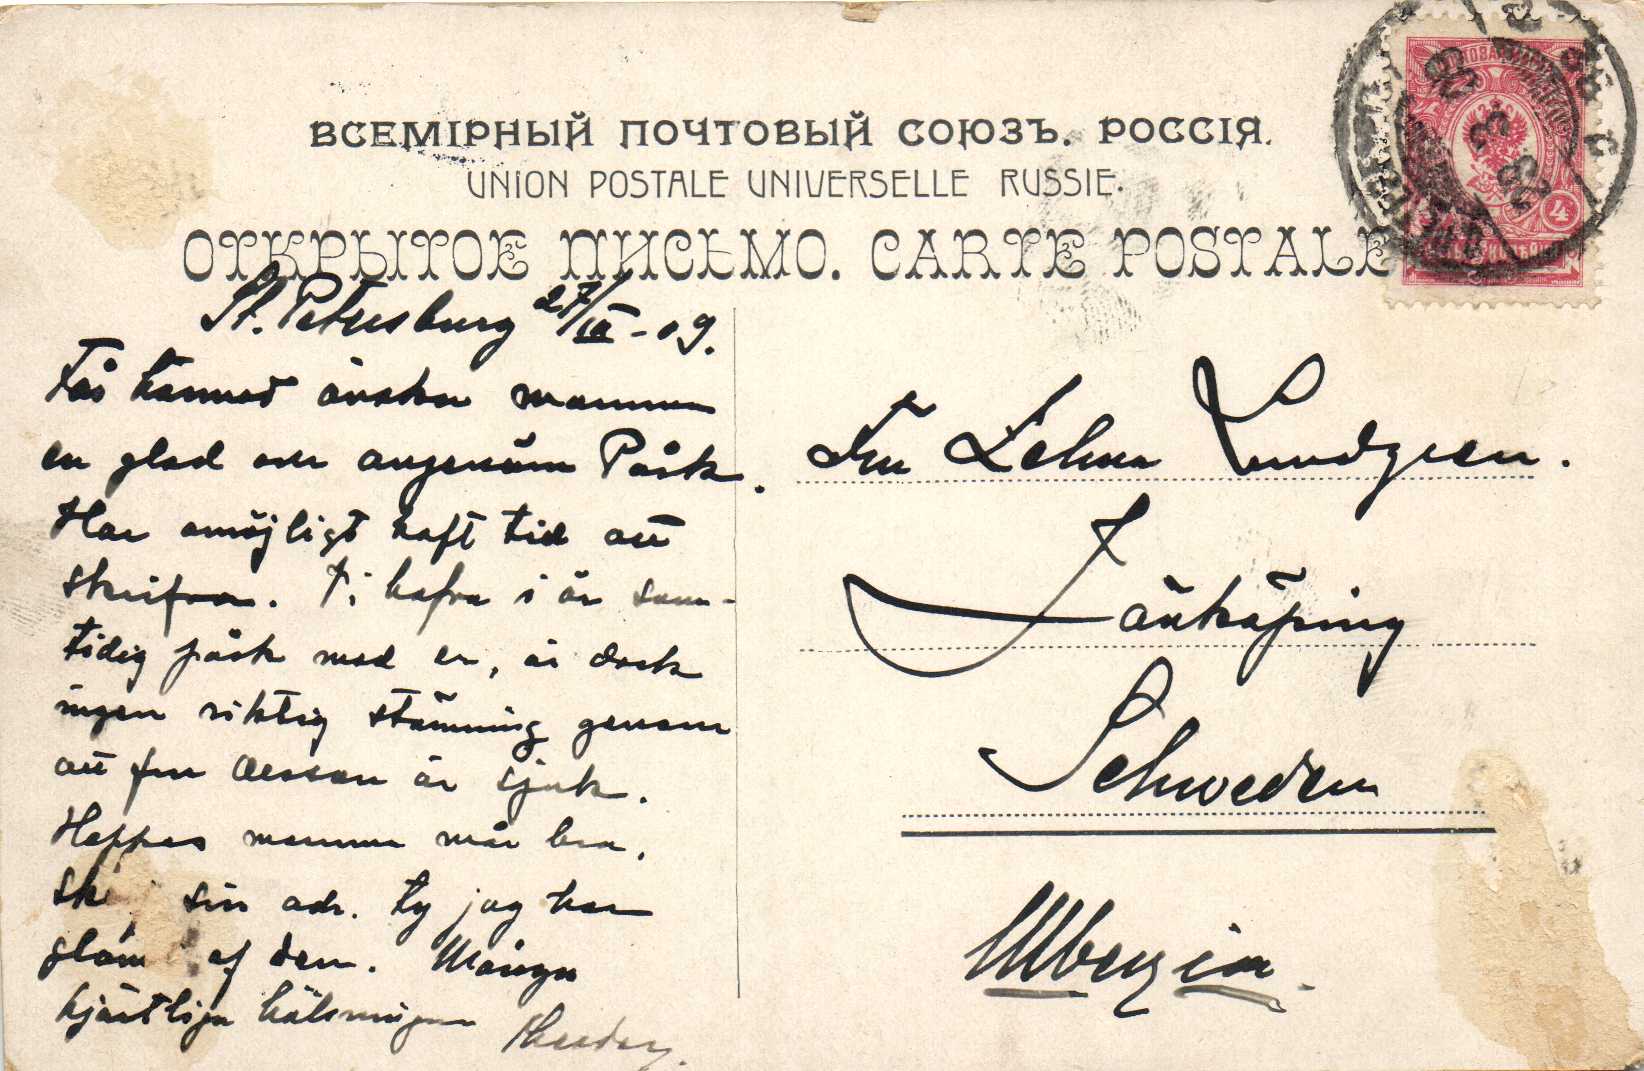 ВСЕМІРНЫЙ ПОЧТОВЫЙ СОЮЗЪ. РОССІЯ.
UNION POSTALE UNIVERSELLE RUSSIE.
ОТКРЫТОЕ ПИСЬМО. CARTE POSTALE
St. Petersburg 27/III - 09.
Får härmed önska mamma
en glad och angenäm Påsk.
Har omöjligt haft tid att
skrifva. Vi hafva i år sam-
tidig påsk med er, är dock
ingen riktig stämning genom
att fru är sjuk.
Hoppas mamma mår bra,
sin adr. ty jag har
af den. Många
hjärtliga hälsningar
Fru Selma Lundgren.
Jönköping
Schweden
4